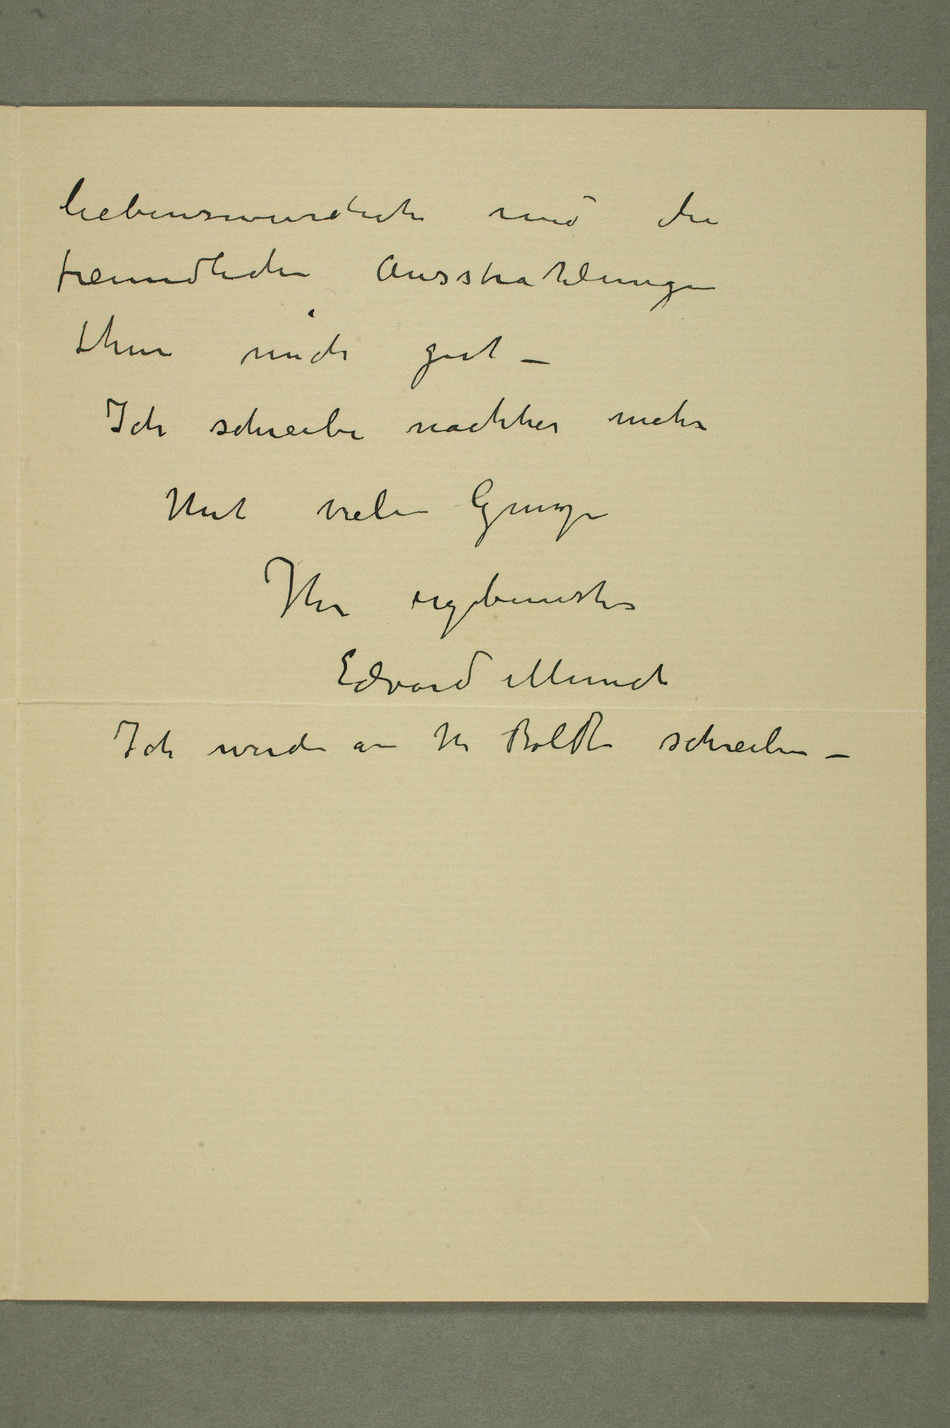 liebenswurdich und die
freundlichen Ausstrahlungen
thun mich gut –
Ich schreibe nachher mehr
Mit vielen Gruzen
Ihr ergebenster
Edvard Munch
Ich werde an Hr Boldt schreiben –